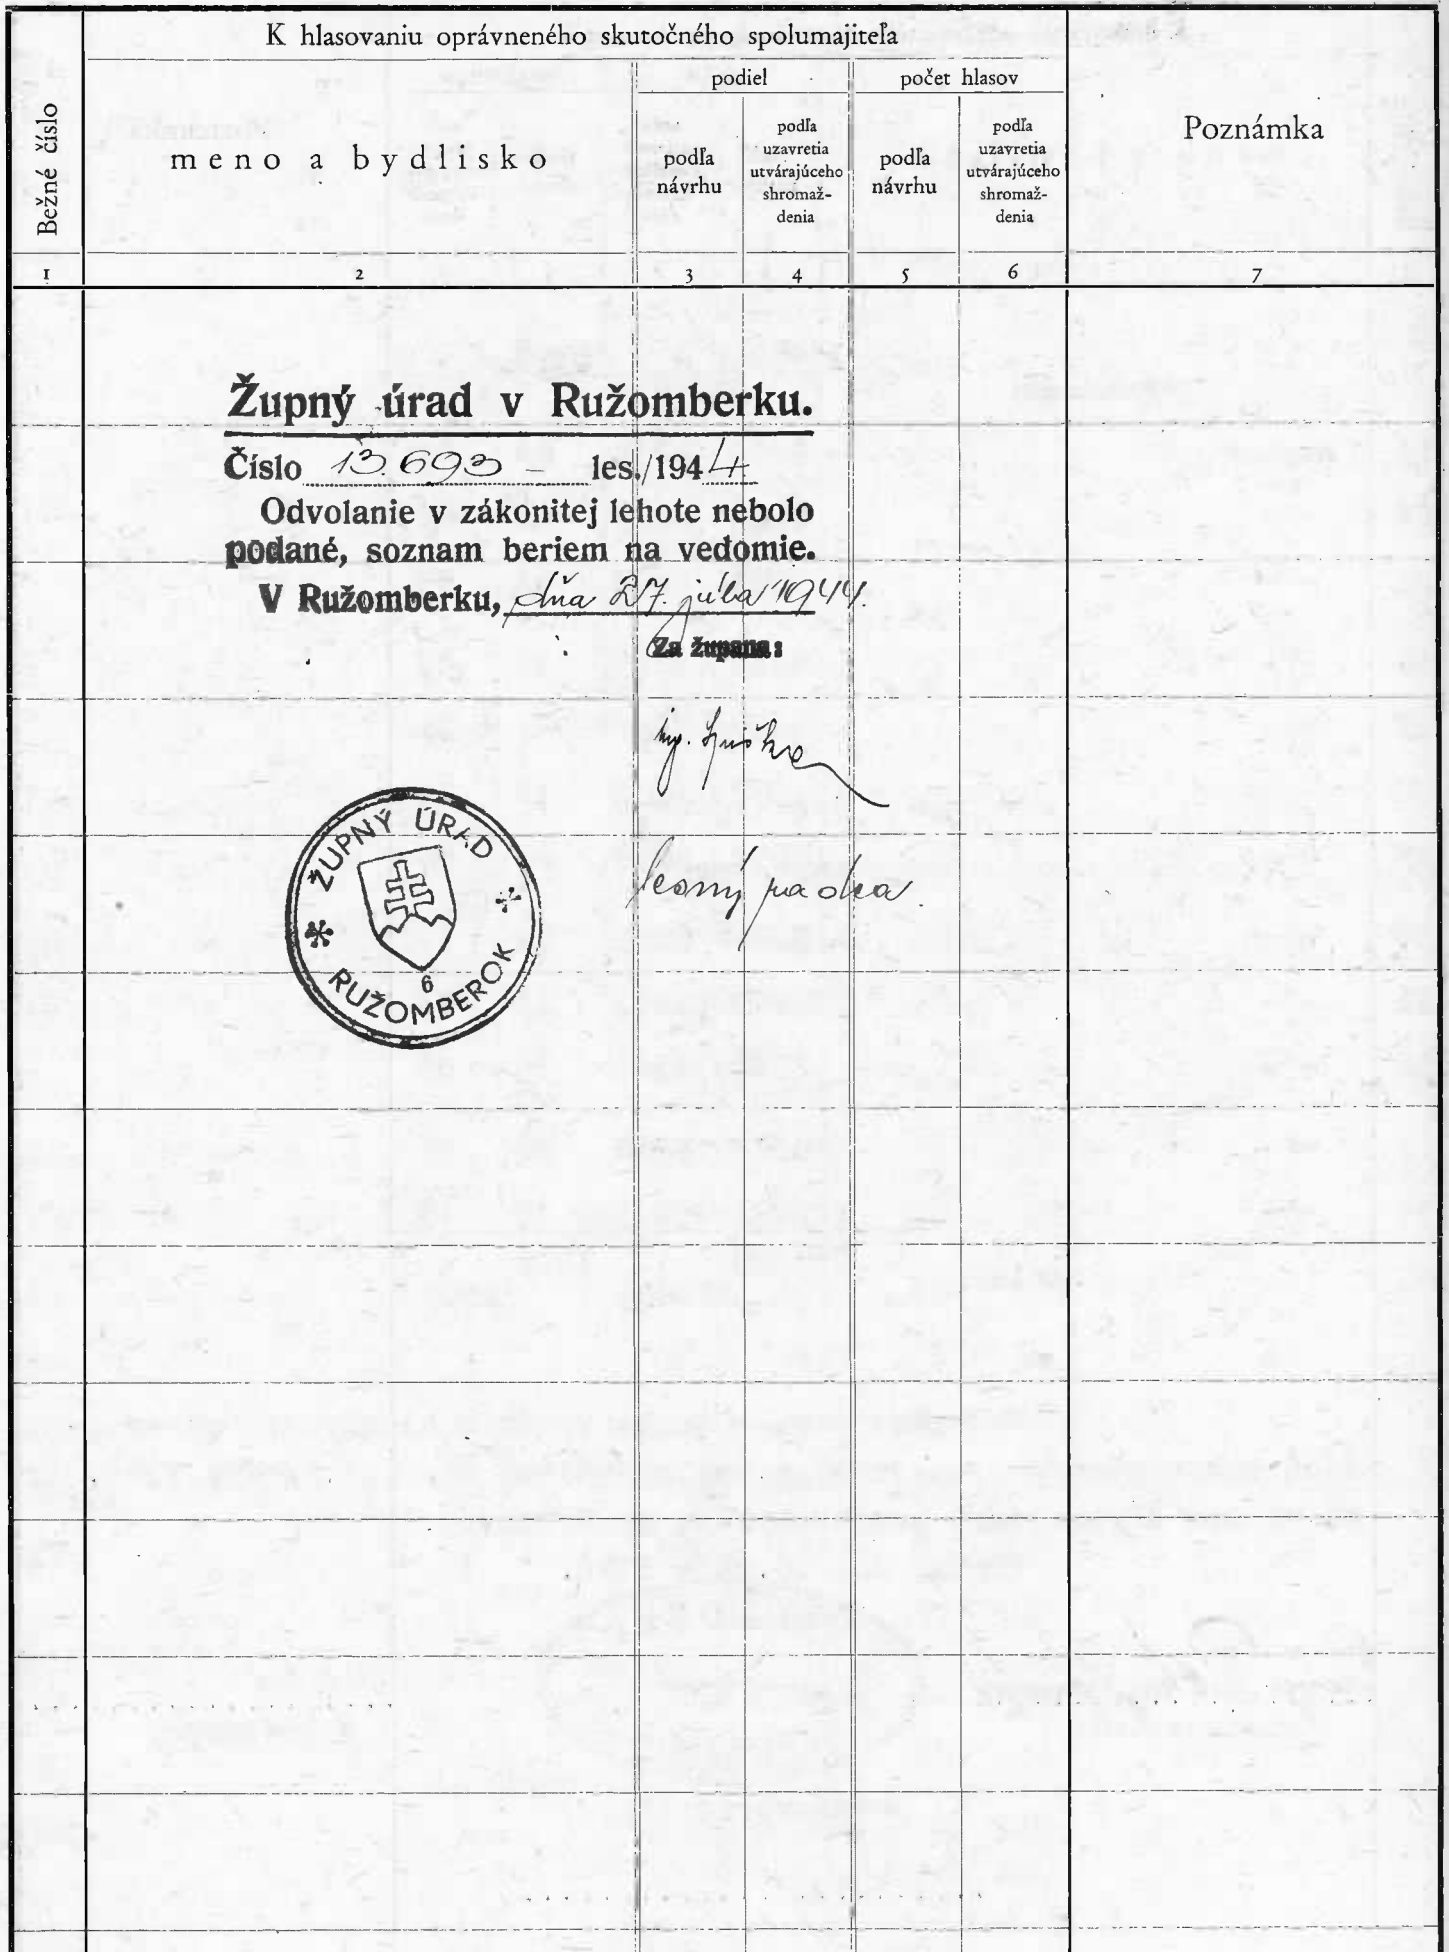 K hlasovaniu oprávneného skutočného spolumajiteľa
Bežné číslo
meno a bydlisko
podiel
počet hlasov
Poznámka
podľa
návrhu
podľa
uzavretia
utvárajúceho
shromaž-
denia
podľa
návrhu
podľa
uzavretia
utvárajúceho
shromaž-
denia
1 2 3 4 5 6 7
Župný úrad v Ružomberku.
Číslo 13.693 - les./1944
Odvolanie v zákonitej lehote nebolo
podané, soznam beriem na vedomie.
V Ružomberku, dňa 27. júla 1944.
Za župana:
ing.
lesný radca.
ŽUPNÝ ÚRAD
6
RUŽOMBEROK